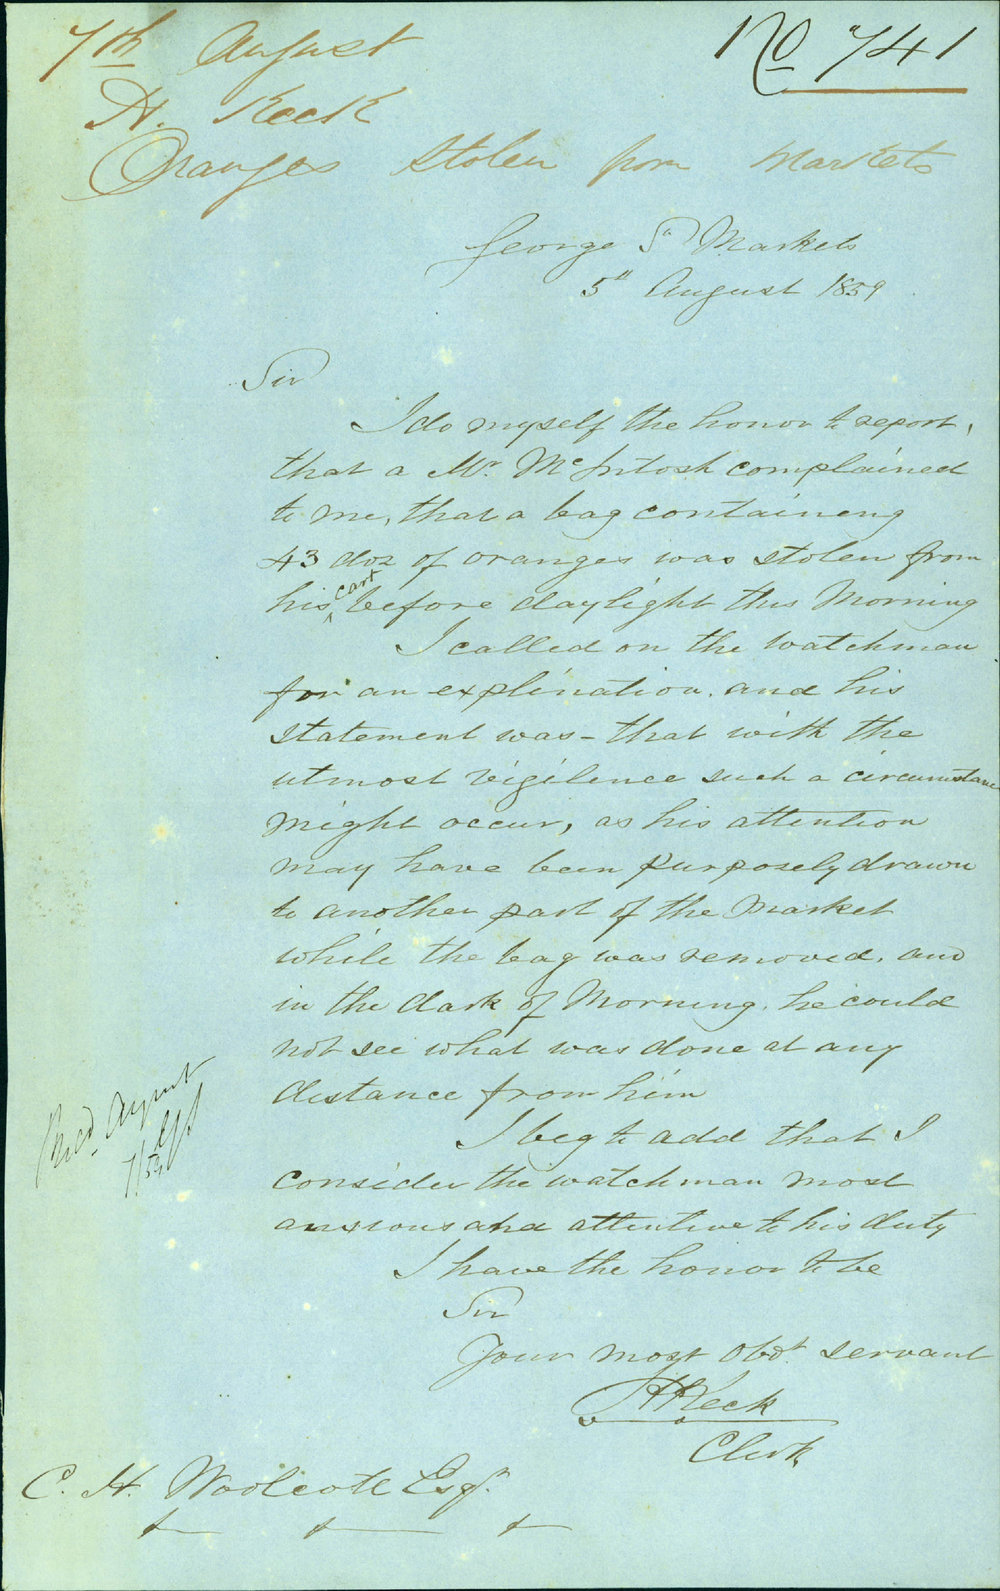 7th August
No 741
H. Keck
Oranges Stolen from Markets
George St Markets
5th August 1859
Sir
I do myself the honor to report,
that a Mr. McIntosh complained
to me, that a bag containeng
43 doz of oranges was stolen from
his cart before daylight this Morning
I called on the watchman
for an explination. and his
statement was - that with the
utmost vigilence such a circumstance
might occur, as his attention
may have been purposely drawn
to another part of the Market
while the bag was removed. and
in the dark of Morning. he could
not see what was done at any
distance from him
I beg to add that I
consider the watchman most
anxious and attentive to his duty
I have the honor to be
Sir
Your most Obdt. servant
H Keck
Clerk
Recd. August
7/59
C. H. Woolcott Esqr.